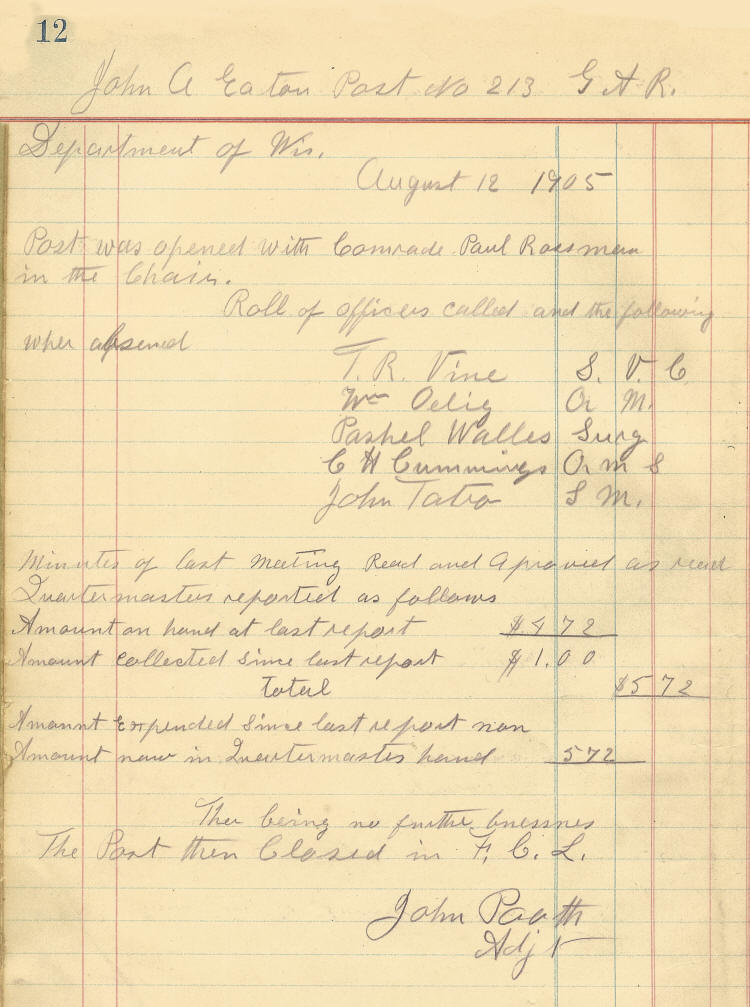 12
John A Eaton Post No 213 G A R.
Department of Wis.
August 12 1905
Post was opened with Comrade Paul Rossman
in the Chair.
Roll of officers called and the following
wher absend
T. R. Vine S. V. C
Wm Oelig Qr M.
Pashel Walles Surg
C H Cummings Q. M S
John Tatro S M.
Minutes of last meeting Read and Aproved as read
Quartermasters reported as follows
Amount on hand at last report $ 4 72
Amount collected since last report $ 1.00
total $5 72
Amount Expended since last report non
Amount now in Quartermasters hand 572
Ther being no further buessnes
The Post then Closed in F. C. L.
John Paath
Adjt